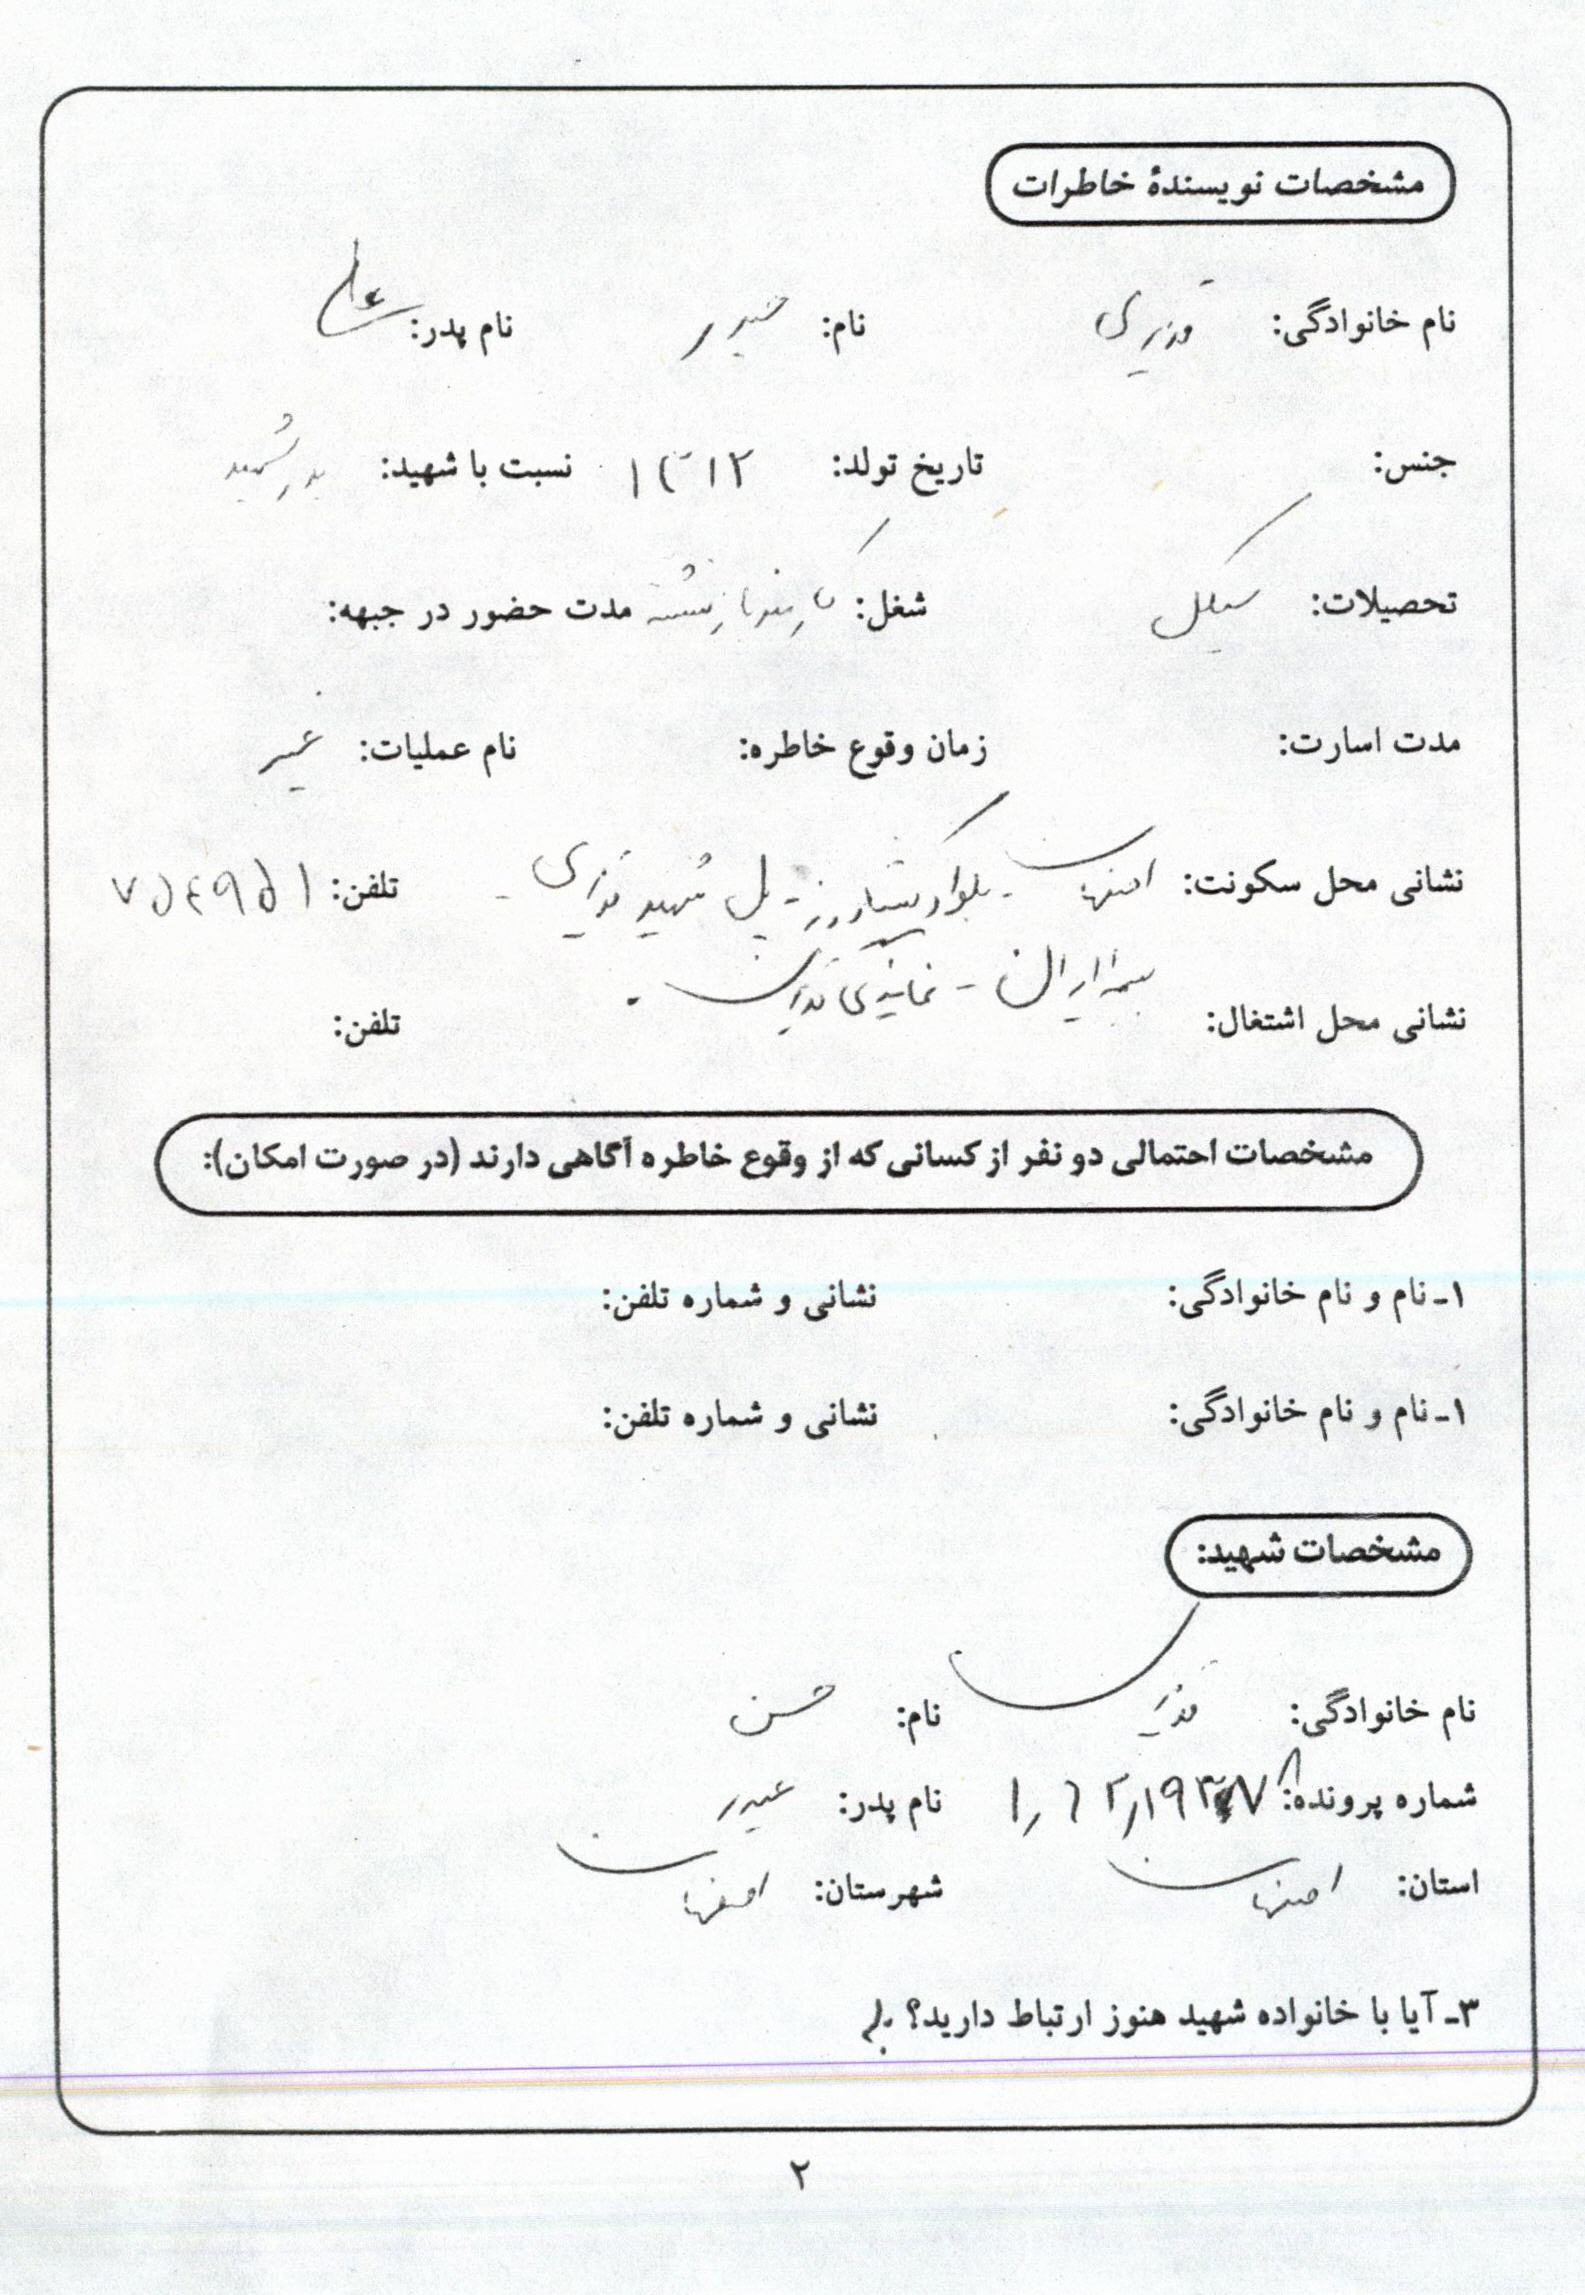 مشخصات نویسندهٔ خاطرات
نام خانوادگی: نام: حیدر نام پدر: علی
جنس: تاریخ تولد: ۱۳۱۲ نسبت با شهید: پدر شهید
تحصیلات: سیکل شغل: کارمند بازنشسته مدت حضور در جبهه:
مدت اسارت: زمان وقوع خاطره: نام عملیات: خیبر
نشانی محل سکونت: اصفهان - بلوار کشاورز - پل شهید - تلفن: ۷۵۴۹۵۱
بیمه ایران - نمایندگی
نشانی محل اشتغال: تلفن:
مشخصات احتمالی دو نفر از کسانی که از وقوع خاطره آگاهی دارند (در صورت امکان):
۱ـ نام و نام خانوادگی: نشانی و شماره تلفن:
۱ـ نام و نام خانوادگی: نشانی و شماره تلفن:
مشخصات شهید:
نام خانوادگی: نام: حسن
شماره پرونده: نام پدر: حیدر
استان: اصفهان شهرستان: اصفهان
۳ـ آیا با خانواده شهید هنوز ارتباط دارید؟ بلی
۲